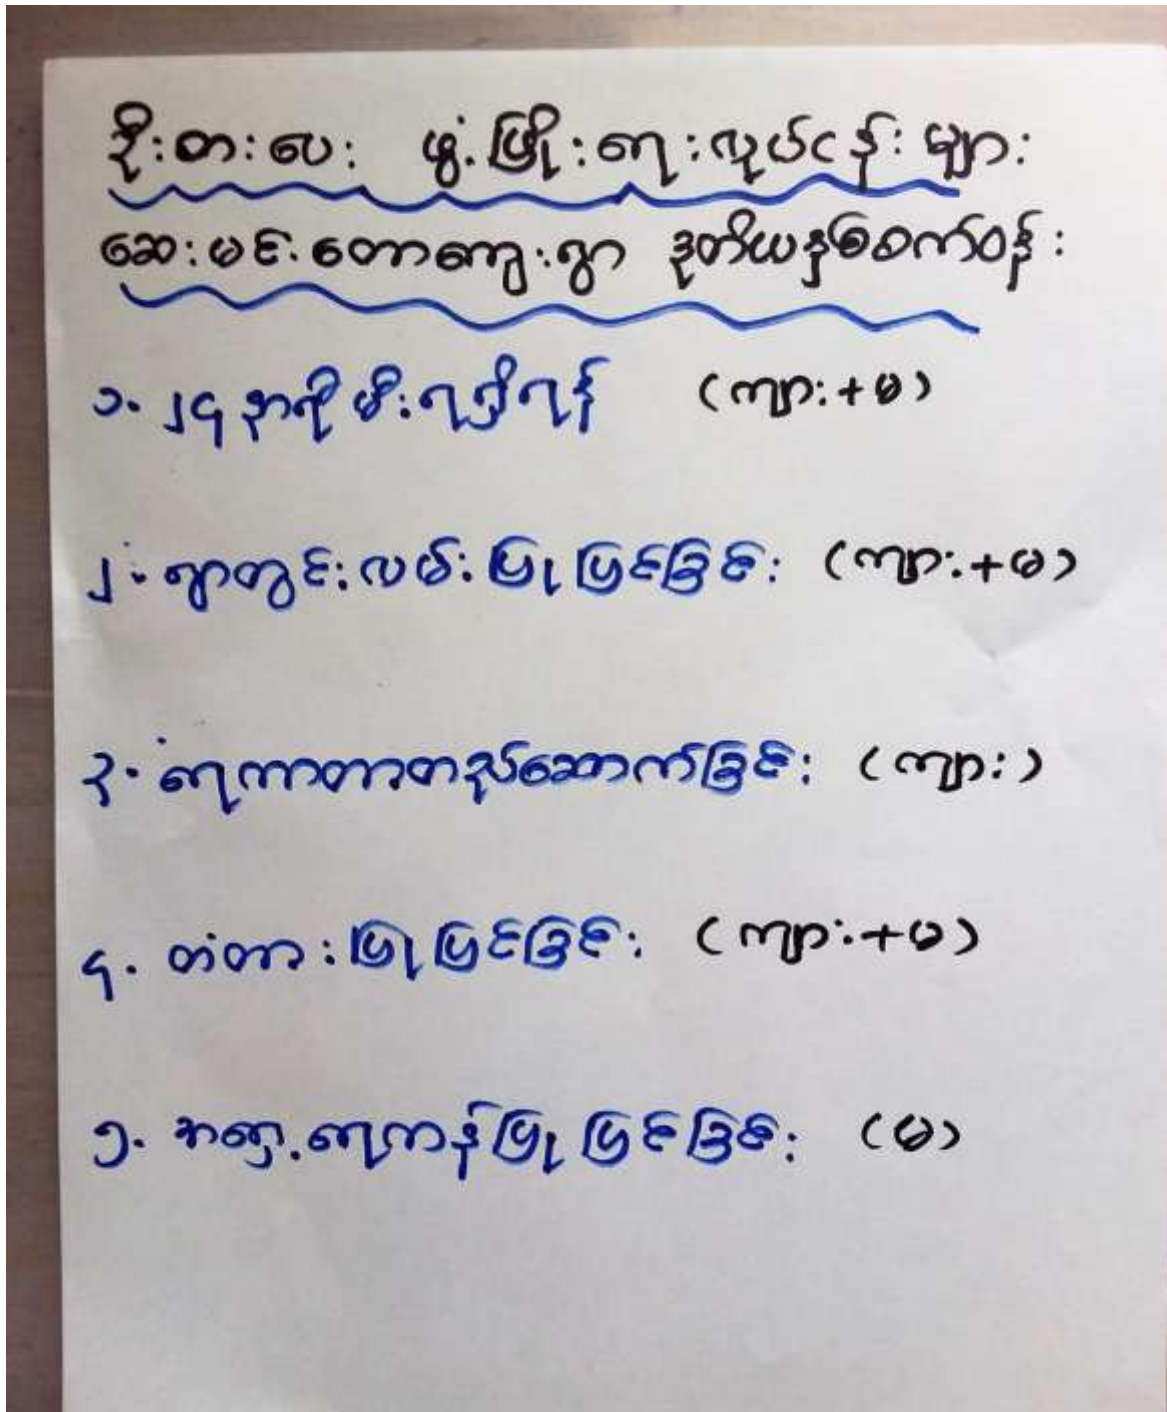 ဦးစားပေး ဖွံ့ဖြိုးရေးလုပ်ငန်းများ
ဆေးမင်းတောကျေးရွာ ဒုတိယနှစ်စက်ဝန်း
၁. ၂၄ နာရီ မီးရရှိရန် (ကျား+မ)
၂. ရွာတွင်းလမ်းပြုပြင်ခြင်း (ကျား+မ)
၃. ရေကာတာတည်ဆောက်ခြင်း (ကျား)
၄. တံတားပြုပြင်ခြင်း (ကျား+မ)
၅. အရှေ့ရေကန်ပြုပြင်ခြင်း (မ)